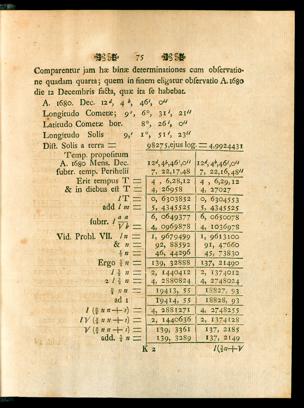 75
Comparentur jam hæ binæ determinationes cum observatio-
ne quadam quarta; quem in finem eligatur observatio A. 1680
die 12 Decembris facta, quæ ita se habebat.
A. 1680. Dec. 12d, 4h, 46', 0''
Longitudo Cometæ; 9s, 6°, 31', 21''
Latitudo Cometæ bor. 8°, 26', 0''
Longitudo Solis 9s, 1°, 51', 23''
Dist. Solis a terra = 98275, ejus log. = 4.9924431
Temp. propositum
A. 1680 Mens. Dec. 12d,4h,46',0'' 12d,4h,46',0''
subtr. temp. Perihelii 7, 22,17,48 7, 22,16,48''
Erit tempus T = 4, 6,28,12 4, 6,29,12
& in diebus est T = 4, 26958 4, 27027
lT = 0, 6303852 0, 6304553
add l m = 5, 4345525 5, 4345525
6, 0649377 6, 0650078
subtr. l a a / V b = 4, 0969878 4, 1036978
Vid. Probl. VII. l n = 1, 9679499 1, 9613100
& n = 92, 88592 91, 47660
½ n = 46, 44296 45, 73830
Ergo ¾ n = 139, 32888 137, 21490
l ¾ n = 2, 1440412 2, 1374012
2 l ¾ n = 4, 2880824 4, 2748024
¾ n n = 19413, 55 18827, 93
ad 1 19414, 55 18828, 93
l (¾ n n + 1) = 4, 2881271 4, 2748255
l V (¾ n n + 1) = 2, 1440636 2, 1374128
V (¾ n n + 1) = 139, 3361 137, 2185
add. ¾ n = 139, 3289 137, 2149
K 2 l(¾n+V